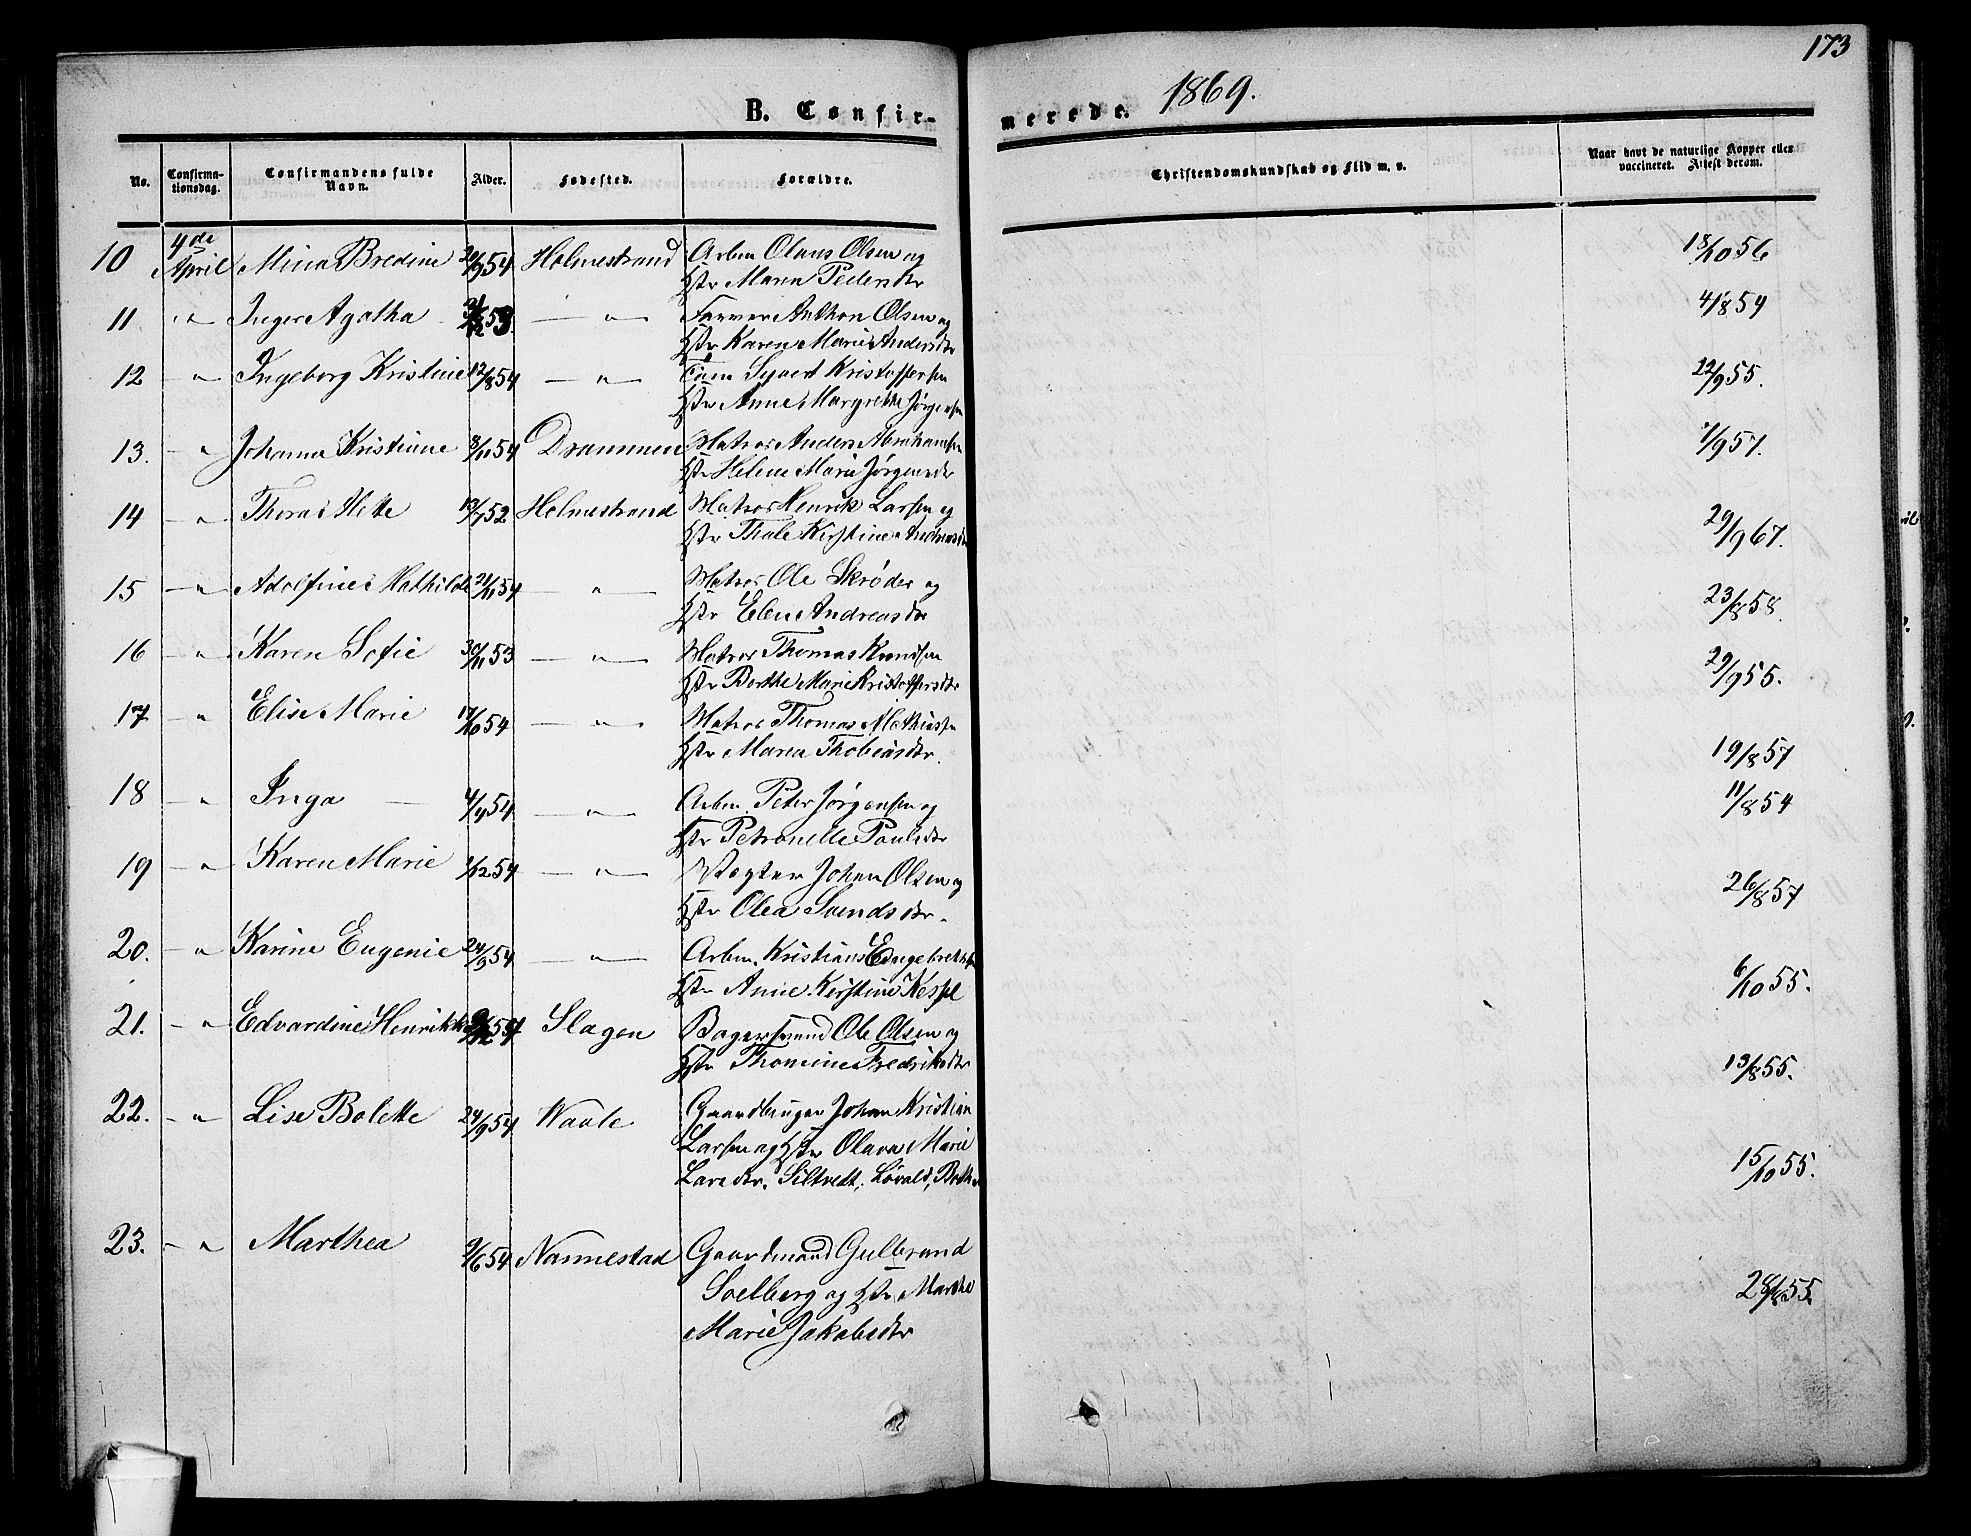 173
B. Confirmerede. 1869.
No. Confirmationsdag. Confirmandens fulde Navn. Alder. Fødested. Forældre. Christendomskundskab og Flid m. v. Naar havt de naturlige Kopper eller vaccineret. Attest derom.
10 4de April Mina Bredine 54 Holmestrand Arbm Olaus Olsen og 18/10 56
Hstr Maren Pedersdtr
11 " Inger Agatha 53 — " — Farver Anthon Olsen og 4/8 54
Hstr Karen Marie Andersdtr
12 " Ingeborg Kristine 12/8 54 — " — Syvert Kristoffersen 22/9 55.
Hstr Anne Margrethe Jørgensen
13. " Johanne Kristiane 8/11 54 Drammen Matros Anders Abrahamsen 7/9 57.
Hstr Helene Marie Jørgensdtr
14 " Thora 13/7 52 Holmestrand Matros Henrik Larsen og 29/9 67.
Hstr Thale Kirstine Andreasdtr
15 " Adolfine Mathilde 21/11 54 — " — Matros Ole Skrøder og 23/8 58.
Hstr Elen Andreasdtr
16 " Karen Sofie 30/11 53 — " — Matros Thomas Knudsen 29/9 55.
Hstr Berthe Marie Kristoffersdtr
17 " Elise Marie 17/10 54 — " — Matros Thomas Mathiassen 19/8 57
Hstr Maren Thobiasdtr.
18 — " Inga — 4/4 54 — " — Arbm. Peter Jørgensen og 11/8 54
Hstr Petronelle Paulsdtr
19 — " Karen Marie 1/12 54 — " — Vægter Johan Olsen og 26/8 57
Hstr Olea Svendsdtr.
20. — " Karine Eugenie 24/9 54 — " — Arbm. Kristian Engebretsen 6/10 55.
Hstr Anne Kirstine Kessel
21. — " Edvardine Henrikke 54 Slagen Bagersvend Ole Olsen og 13/8 55.
Hstr Thomine Fredriksdtr
22. — " Lise Bolette 24/9 54 Vaale Gaardbruger Johan Kristian
Larsen og Hstr Olava Marie
Larsdtr. Siltvedt, Løvald, Bothne 15/10 55.
23. — " Marthea 9/6 54 Nannestad Gaardmand Gulbrand
Soelberg og Hstr Marthe 28/8 55.
Marie Jakobsdtr